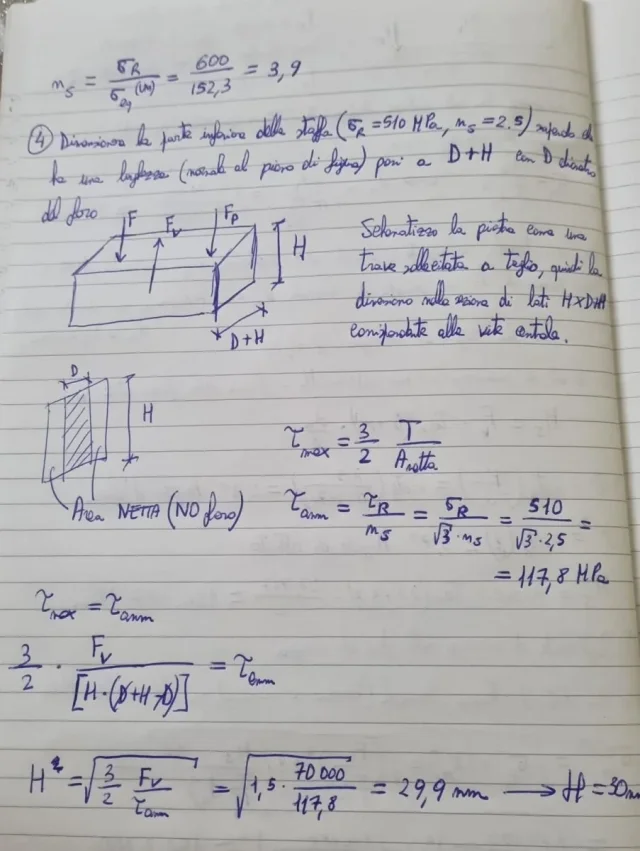 n_s = σ_R / σ_eq (VM) = 600 / 152,3 = 3,9
④ Dimensiona la parte inferiore della staffa (σ_R = 510 MPa, n_s = 2.5) sapendo che
ha una larghezza (normale al piano di figura) pari a D+H con D diametro
del foro
F F_v F_p H
D+H
Schematizzo la piastra come una
trave sollecitata a taglio, quindi la
dimensiono nella sezione di lati H×D+H
corrispondente alla vite centrale.
D H
Area NETTA (NO foro)
τ_max = 3/2 T / A_netta
τ_amm = τ_R / n_s = σ_R / √3 · n_s = 510 / √3 · 2,5 =
= 117,8 MPa
τ_max = τ_amm
3/2 · F_v / [H·(D+H-D)] = τ_amm
H² = √(3/2 F_v / τ_amm) = √(1,5 · 70000 / 117,8) = 29,9 mm → H = 30m